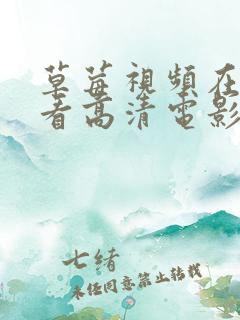 草莓視頻在
看高清電影
七緒
未经同意禁止转载